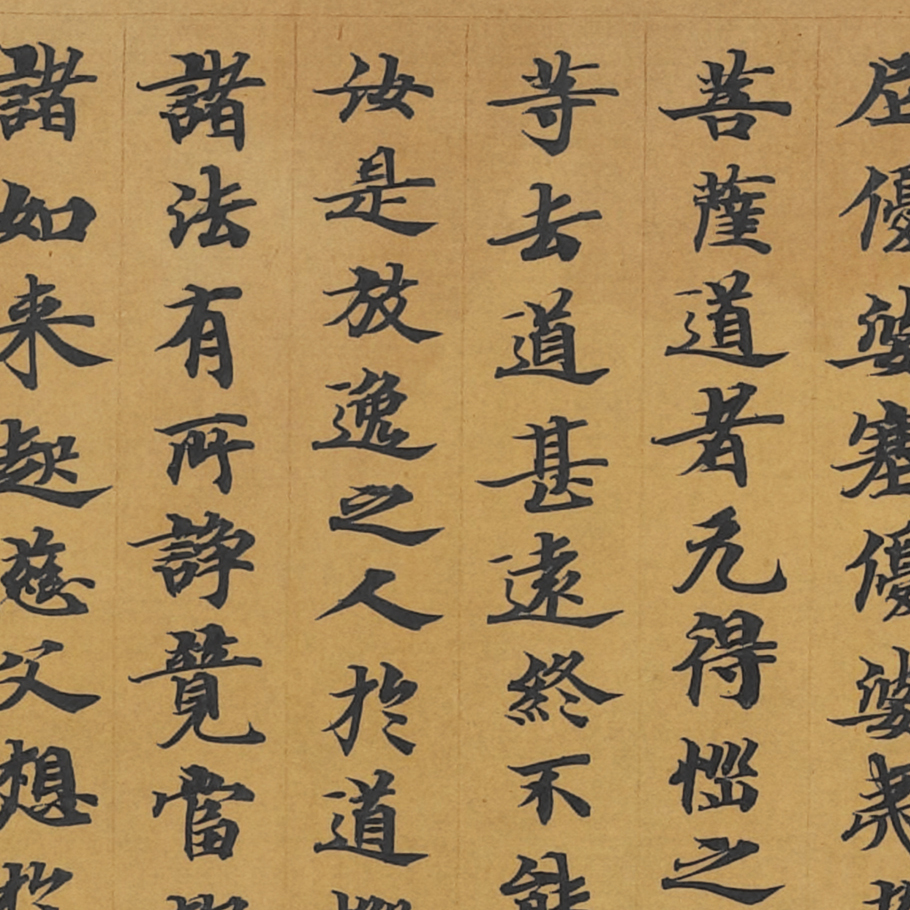 尼優婆塞優婆夷
菩薩道者无得惱之
等去道甚遠終不能
汝是放逸之人於道
諸法有所諍競當
諸如来起慈父想於